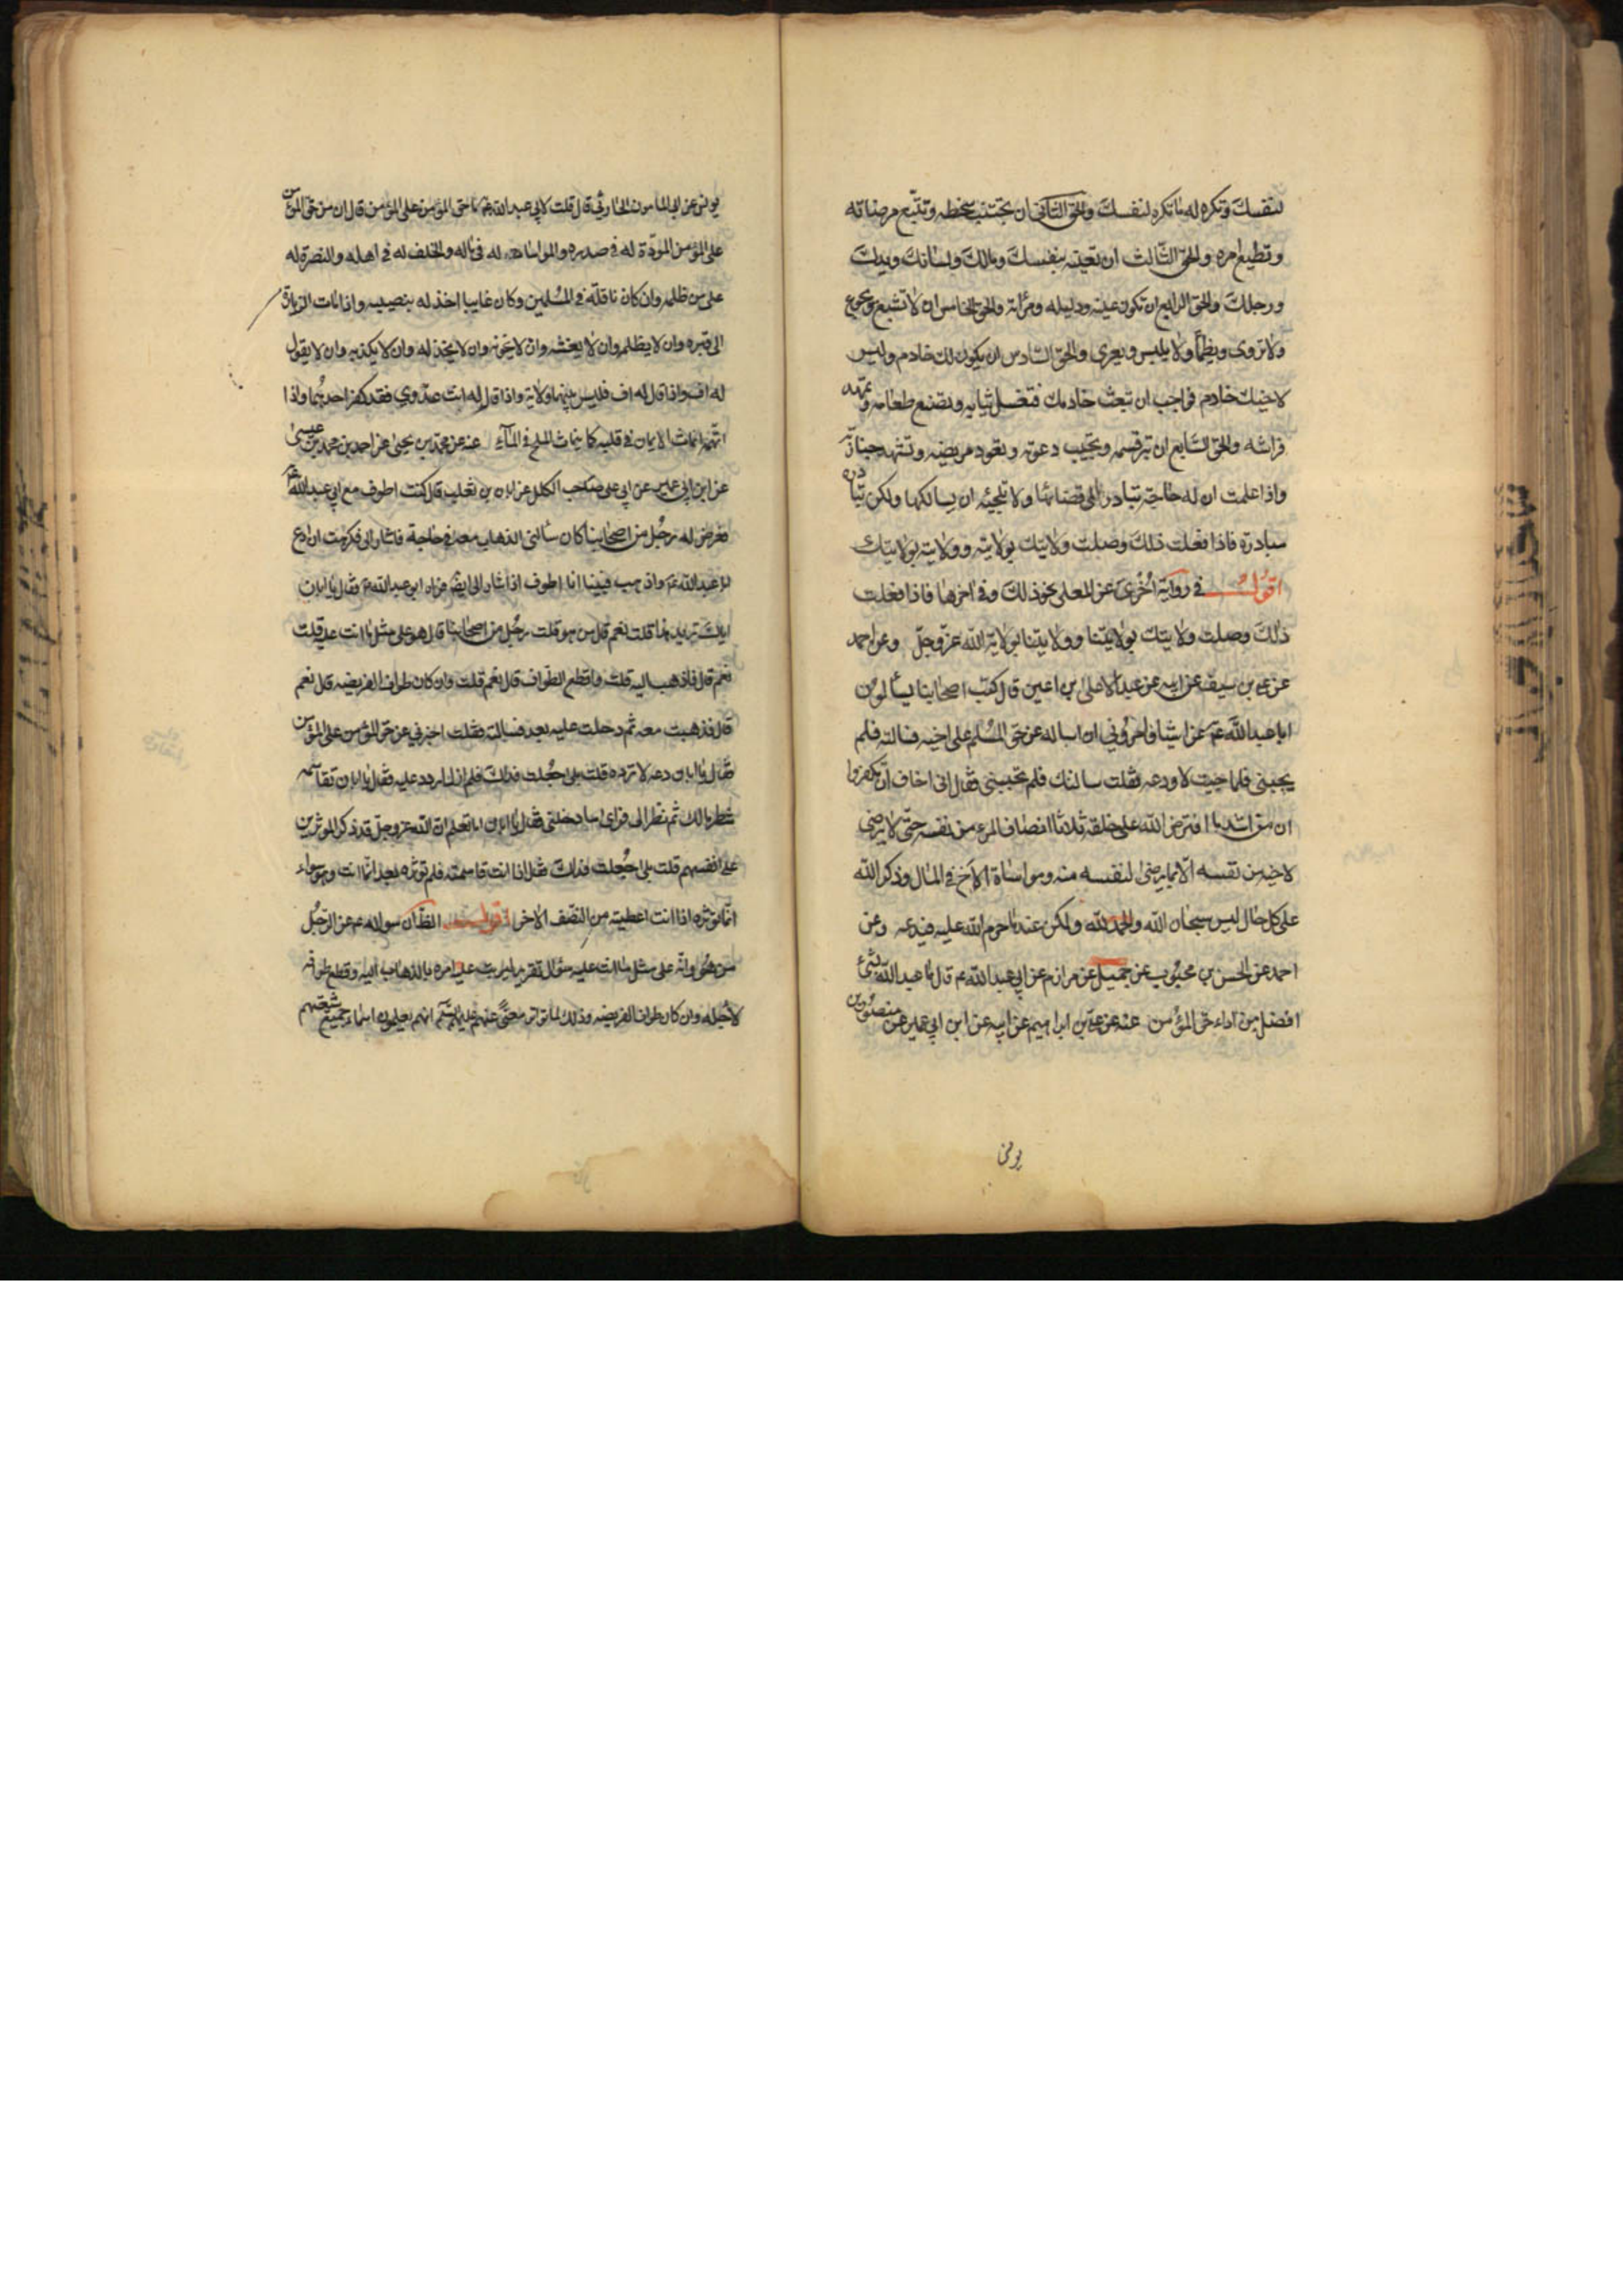 لنفسك وتكره له ما تكره لنفسك والحق الثاني ان تجتنب سخطه وتتبع مرضاته
وتطيع امره والحق الثالث ان تعينه بنفسك ومالك ولسانك ويدك
ورجلك والحق الرابع ان تكون عينه ودليله ومرآته والحق الخامس ان لا تشبع ويجوع
ولا تروى ويظمأ ولا يلبس ويعرى والحق السادس ان يكون لك خادم وليس
لاخيك خادم فواجب ان تبعث خادمك فتغسل ثيابه وتصنع طعامه وتمهد
فراشه والحق السابع ان تبر قسمه وتجيب دعوته وتعود مريضه وتشهد جنازته
واذا علمت ان له حاجة تبادر الى قضائها ولا تلجئه ان يسالكها ولكن تبادره
مبادرة فاذا فعلت ذلك وصلت ولايتك بولايته وولايته بولايتك
اقول في رواية اخرى عن المعلى نحو ذلك وفي اخرها فاذا فعلت
ذلك وصلت ولايتك بولايتنا وولايتنا بولاية الله عز وجل وعن احمد
عن علي بن سيف عن ابيه عن عبد الاعلى بن اعين قال كتب اصحابنا يسألون
ابا عبد الله عم عن اشياء وامروني ان اساله عن حق المسلم على اخيه فسالته فلم
يجبني فلما جيت لاودعه فقلت سالتك فلم تجبني فقال اني اخاف ان تكفروا
ان من اشد ما افترض الله على خلقه ثلاثا انصاف المرء من نفسه حتى لا يرضى
لاخيه من نفسه الا بما يرضى لنفسه منه ومواساة الاخ في المال وذكر الله
على كل حال ليس سبحان الله والحمد لله ولكن عند ما حرم الله عليه فيدعه وعن
احمد عن الحسن بن محبوب عن جميل عن مرازم عن ابي عبد الله عم قال ما عبد الله بشيء
افضل من اداء حق المؤمن عنه عن علي بن ابراهيم عن ابيه عن ابن ابي عمير عن منصور بن
يونس
يونس عن ابي المامون الحارثي قال قلت لابي عبد الله عم ما حق المؤمن على المؤمن قال ان من حق المؤمن
على المؤمن المودة له في صدره والمواساة له في ماله والخلف له في اهله والنصرة له
على من ظلمه وان كان نافلة في المسلمين وكان غايبا اخذ له بنصيبه واذا مات الزيارة
الى قبره وان لا يظلمه وان لا يغشه وان لا يخونه وان لا يخذله وان لا يكذبه وان لا يقول
له اف واذا قال له اف فليس بينهما ولاية واذا قال له انت عدوي فقد كفر احدهما واذا
اتهمه انماث الايمان في قلبه كما ينماث الملح في الماء عنه عن محمد بن يحيى عن احمد بن محمد بن عيسى
عن ابن ابي عمير عن ابي علي صاحب الكلل عن ابان بن تغلب قال كنت اطوف مع ابي عبد الله عم
فعرض له رجل من اصحابنا كان سألني الذهاب معه في حاجة فاشار الي فكرهت ان ادع
ابا عبد الله عم واذهب فبينا انا اطوف اذ اشار الي ايضا فراه ابو عبد الله عم فقال يا ابان
اياك يريد هذا قلت نعم قال من هو قلت رجل من اصحابنا قال هو على مثل ما انت عليه قلت
نعم قال فاذهب اليه قلت واقطع الطواف قال نعم قلت وان كان طواف الفريضه قال نعم
قال فذهبت معه ثم دخلت عليه بعد فسالته فقلت اخبرني عن حق المؤمن على المؤمن
فقال يا ابان دعه لا ترده قلت بلى جعلت فداك فلم ازل اردد عليه فقال يا ابان تقاسمه
شطر مالك ثم نظر الي فراى ما دخلني فقال يا ابان اما تعلم ان الله عز وجل قد ذكر المؤثرين
على انفسهم قلت بلى جعلت فداك فقال اذا انت قاسمته فلم تؤثره بعد انما انت وهو سواء
انما تؤثره اذا انت اعطيته من النصف الاخر اقول الظ ان سواله عم عن الرجل
من هو وانه على مثل ما انت عليه سؤال تقرير ليرتب عليه امره بالذهاب اليه وقطع طوافه
لاجله وان كان طواف الفريضه وذلك لما تواتر معنى عنهم عليهم السلم انهم يعلمون اسماء جميع شيعتهم